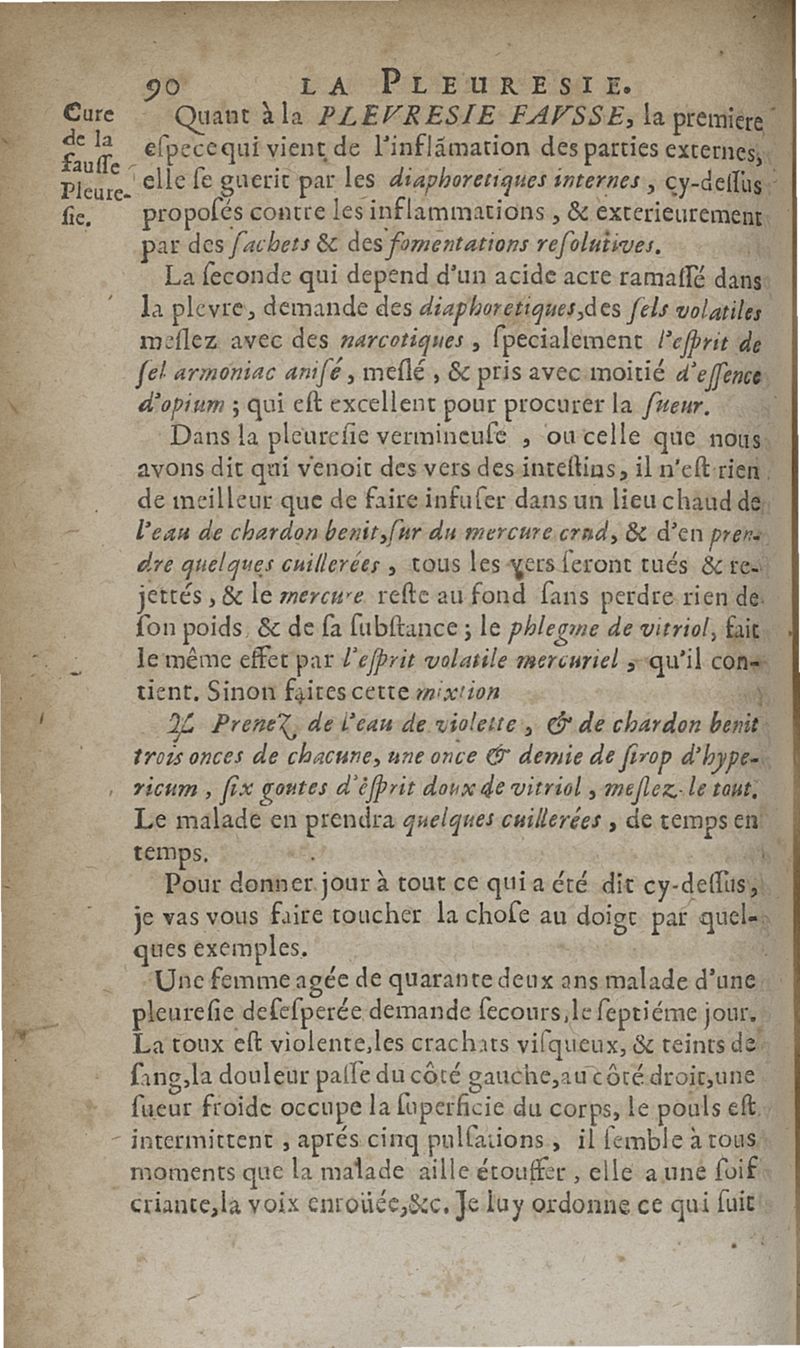 90 LA PLEURESIE.
Cure
de la
fauſſe
Pleure-
ſie.
Quant à la PLEVRESIE FAVSSE, la premiere
eſpece qui vient de l'inflãmation des parties externes,
elle ſe guerit par les diaphoretiques internes, cy-deſſus
propoſés contre les inflammations, & exterieurement
par des ſachets & des fomentations reſolutives.
La ſeconde qui depend d'un acide acre ramaſſé dans
la plevre, demande des diaphoretiques, des ſels volatiles
meſlez avec des narcotiques, ſpecialement l'eſprit de
ſel armoniac aniſé, meſlé, & pris avec moitié d'eſſence
d'opium; qui eſt excellent pour procurer la ſueur.
Dans la pleureſie vermineuſe, ou celle que nous
avons dit qui venoit des vers des inteſtins, il n'eſt rien
de meilleur que de faire infuſer dans un lieu chaud de
l'eau de chardon benit, ſur du mercure crud, & d'en pren-
dre quelques cuillerées, tous les vers ſeront tués & re-
jettés, & le mercure reſte au fond ſans perdre rien de
ſon poids, & de ſa ſubſtance; le phlegme de vitriol, fait
le même effet par l'eſprit volatile mercuriel, qu'il con-
tient. Sinon faites cette mixtion
℞ Prenez de l'eau de violette, & de chardon benit
trois onces de chacune, une once & demie de ſirop d'hype-
ricum, ſix goutes d'eſprit doux de vitriol, meſlez-le tout.
Le malade en prendra quelques cuillerées, de temps en
temps.
Pour donner jour à tout ce qui a été dit cy-deſſus,
je vas vous faire toucher la choſe au doigt par quel-
ques exemples.
Une femme agée de quarante deux ans malade d'une
pleureſie deſeſperée demande ſecours, le ſeptiéme jour.
La toux eſt violente, les crachats viſqueux, & teints de
ſang, la douleur paſſe du côté gauche, au côté droit, une
ſueur froide occupe la ſuperficie du corps, le pouls eſt
intermittent, aprés cinq pulſations, il ſemble à tous
moments que la malade aille étouffer, elle a une ſoif
criante, la voix enroüée, &c. Je luy ordonne ce qui ſuit